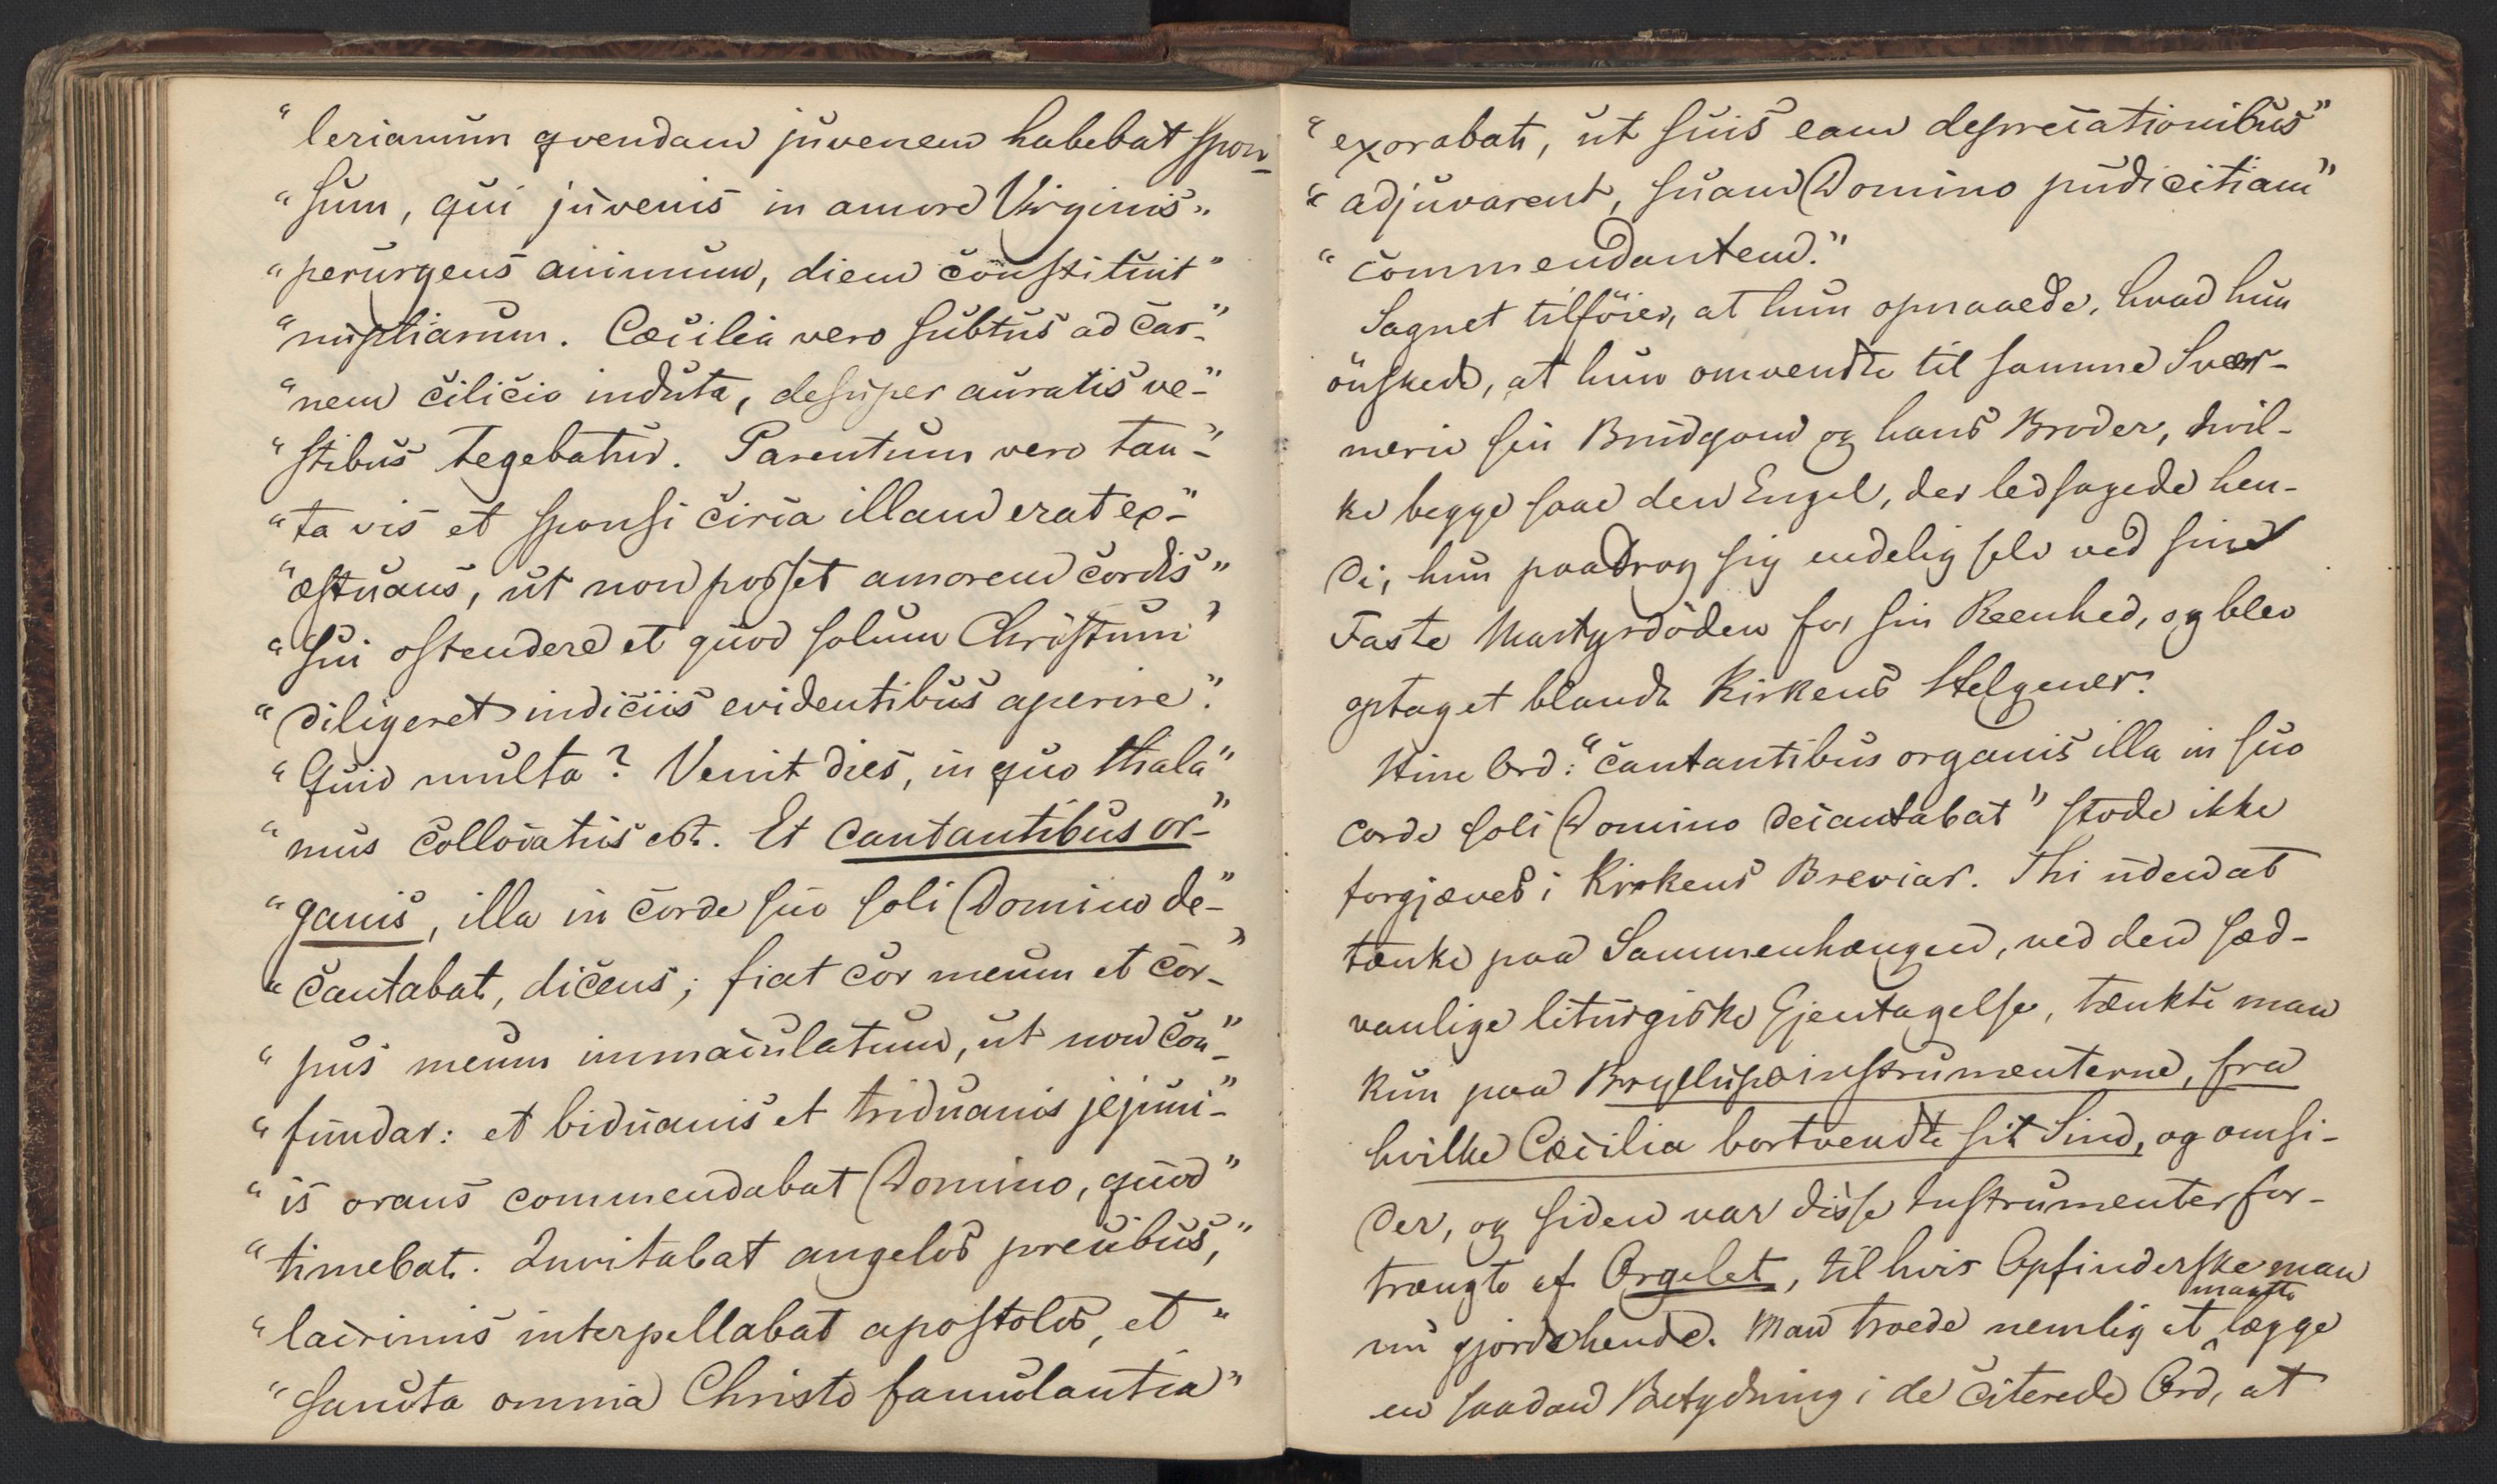 “lerianum qvendam juvenem habebat spon-
“sum, qui juvenis in amore Virginis”
“perurgens animum, diem constituit”
“nuptiarum. Cæcilia vero subtus ad car-”
“nem cilicio induta, desuper auratis ve-”
“stibus tegebatur. Parentum vero tan-”
“ta vis et sponsi circa illam erat ex-”
“æstuans, ut non posset amorem cordis”
“sui ostendere et quod solum Christum”
“diligeret indiciis evidentibus aperire”.
“Quid multa? Venit dies, in quo thala”
“mus collocatus est. Et cantantibus or-”
“ganis, illa in corde suo soli Domino de-”
“cantabat, dicens; fiat cor meum et cor-”
“pus meum immaculatum, ut non con-”
“fundar: et biduanis et triduanis jejuni-”
“is orans commendabat Domino, quod”
“timebat. Invitabat angelos precibus,”
“lacrimis interpellabat apostolos, et”
“sancta omnia Christo famulantia”
“exorabat, ut suis eam deprecationibus”
“adjuvarent, suam Domino pudicitiam”
“commendantem.”
Sagnet tilföier, at hun opnaaede, hvad hun
önskede, at hun omvendte til samme Svær-
merie sin Brudgom og hans Broder, hvil-
ke begge saae den Engel, der ledsagede hen-
de; hun paadrog sig endelig selv ved sine
Faste Martyrdöden for sin Reenhed, og blev
optaget blandt Kirkens Helgener.
Hine Ord: “cantantibus organis illa in suo
corde soli Domino decantabat” stode ikke
forgjæves i Kirkens Breviar. Thi uden at
tænke paa Sammenhængen, ved den sæd-
vanlige liturgiske Gjentagelse, tænkte man
kun paa Bryllupsinstrumenterne, fra
hvilke Cæcilia bortvendte sit Sind, og omsi-
der, og siden var disse Instrumenter for-
trængte af Orgelet, til hvis Opfinderske man
nu gjorde hende. Man troede nemlig at maatte lægge
en saadan Betydning i de citerede Ord, at